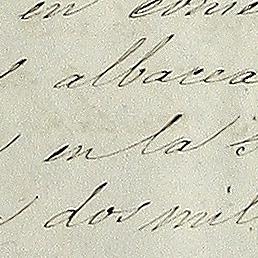 en
albacea
en la
dos mil